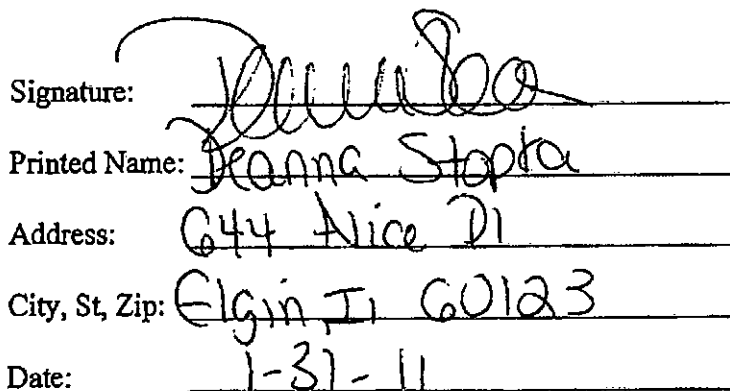 Signature:
Printed Name: Deanna Stopka
Address: 644 Alice Dr
City, St, Zip: Elgin, Il 60123
Date: 1-31-11